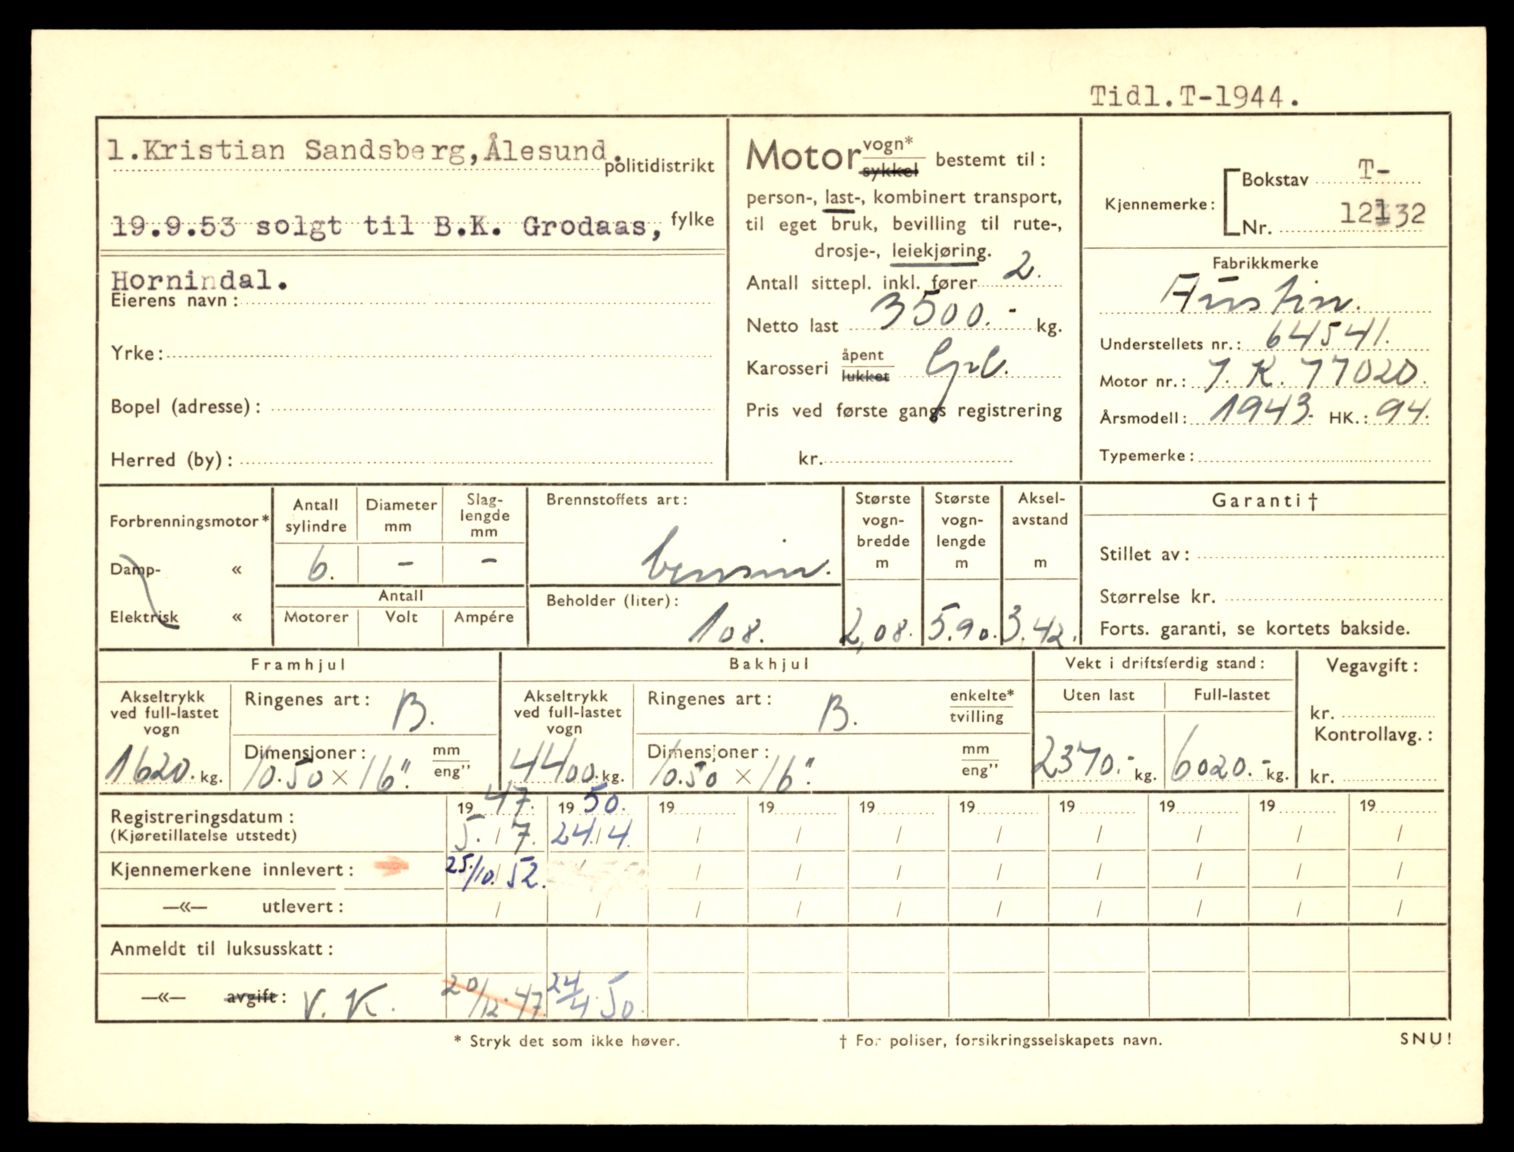 Tidl.T-1944.
1.Kristian Sandsberg,Ålesund.
politidistrikt
19.9.53 solgt til B.K. Grodaas, fylke
Hornindal.
Eierens navn:
Yrke:
Bopel (adresse):
Herred (by):
Motor vogn* sykkel bestemt til:
person-, last-, kombinert transport,
til eget bruk, bevilling til rute-,
drosje-, leiekjøring.
Antall sittepl. inkl. fører 2.
Netto last 3500.- kg.
Karosseri åpent lukket
Pris ved første gangs registrering
kr.
Kjennemerke:
Bokstav T-
Nr. 12132
Fabrikkmerke
Austin.
Understellets nr.: 64541.
Motor nr.: J. K. 77020.
Årsmodell: 1943. HK.: 94.
Typemerke:
Forbrenningsmotor*
Damp- «
Elektrisk «
Antall sylindre
Diameter mm
Slag-lengde mm
6. - -
Antall
Motorer Volt Ampére
Brennstoffets art:
bensin.
Beholder (liter):
108.
Største vogn-bredde m
2,08.
Største vogn-lengde m
5.90.
Aksel-avstand m
3.42.
Garanti †
Stillet av:
Størrelse kr.
Forts. garanti, se kortets bakside.
Framhjul
Akseltrykk ved full-lastet vogn
1620. kg.
Ringenes art: B.
Dimensjoner: mm eng"
10.50 × 16".
Bakhjul
Akseltrykk ved full-lastet vogn
4400. kg.
Ringenes art: B. enkelte* tvilling
Dimensjoner: mm eng"
10.50 × 16".
Vekt i driftsferdig stand:
Uten last Full-lastet
2370.- kg. 6020.- kg.
Vegavgift:
kr.
Kontrollavg.:
kr.
Registreringsdatum:
(Kjøretillatelse utstedt)
19 47. 19 50. 19 19 19 19 19 19 19 19
5. / 7. 24 / 4. / / / / / / / /
Kjennemerkene innlevert: 25/10. 52. / / / / / / / /
—«— utlevert: / / / / / / / / / /
Anmeldt til luksusskatt:
—«— avgift: V. K. 20/12.47. 24/4.50.
* Stryk det som ikke høver.
† For poliser, forsikringsselskapets navn.
SNU!